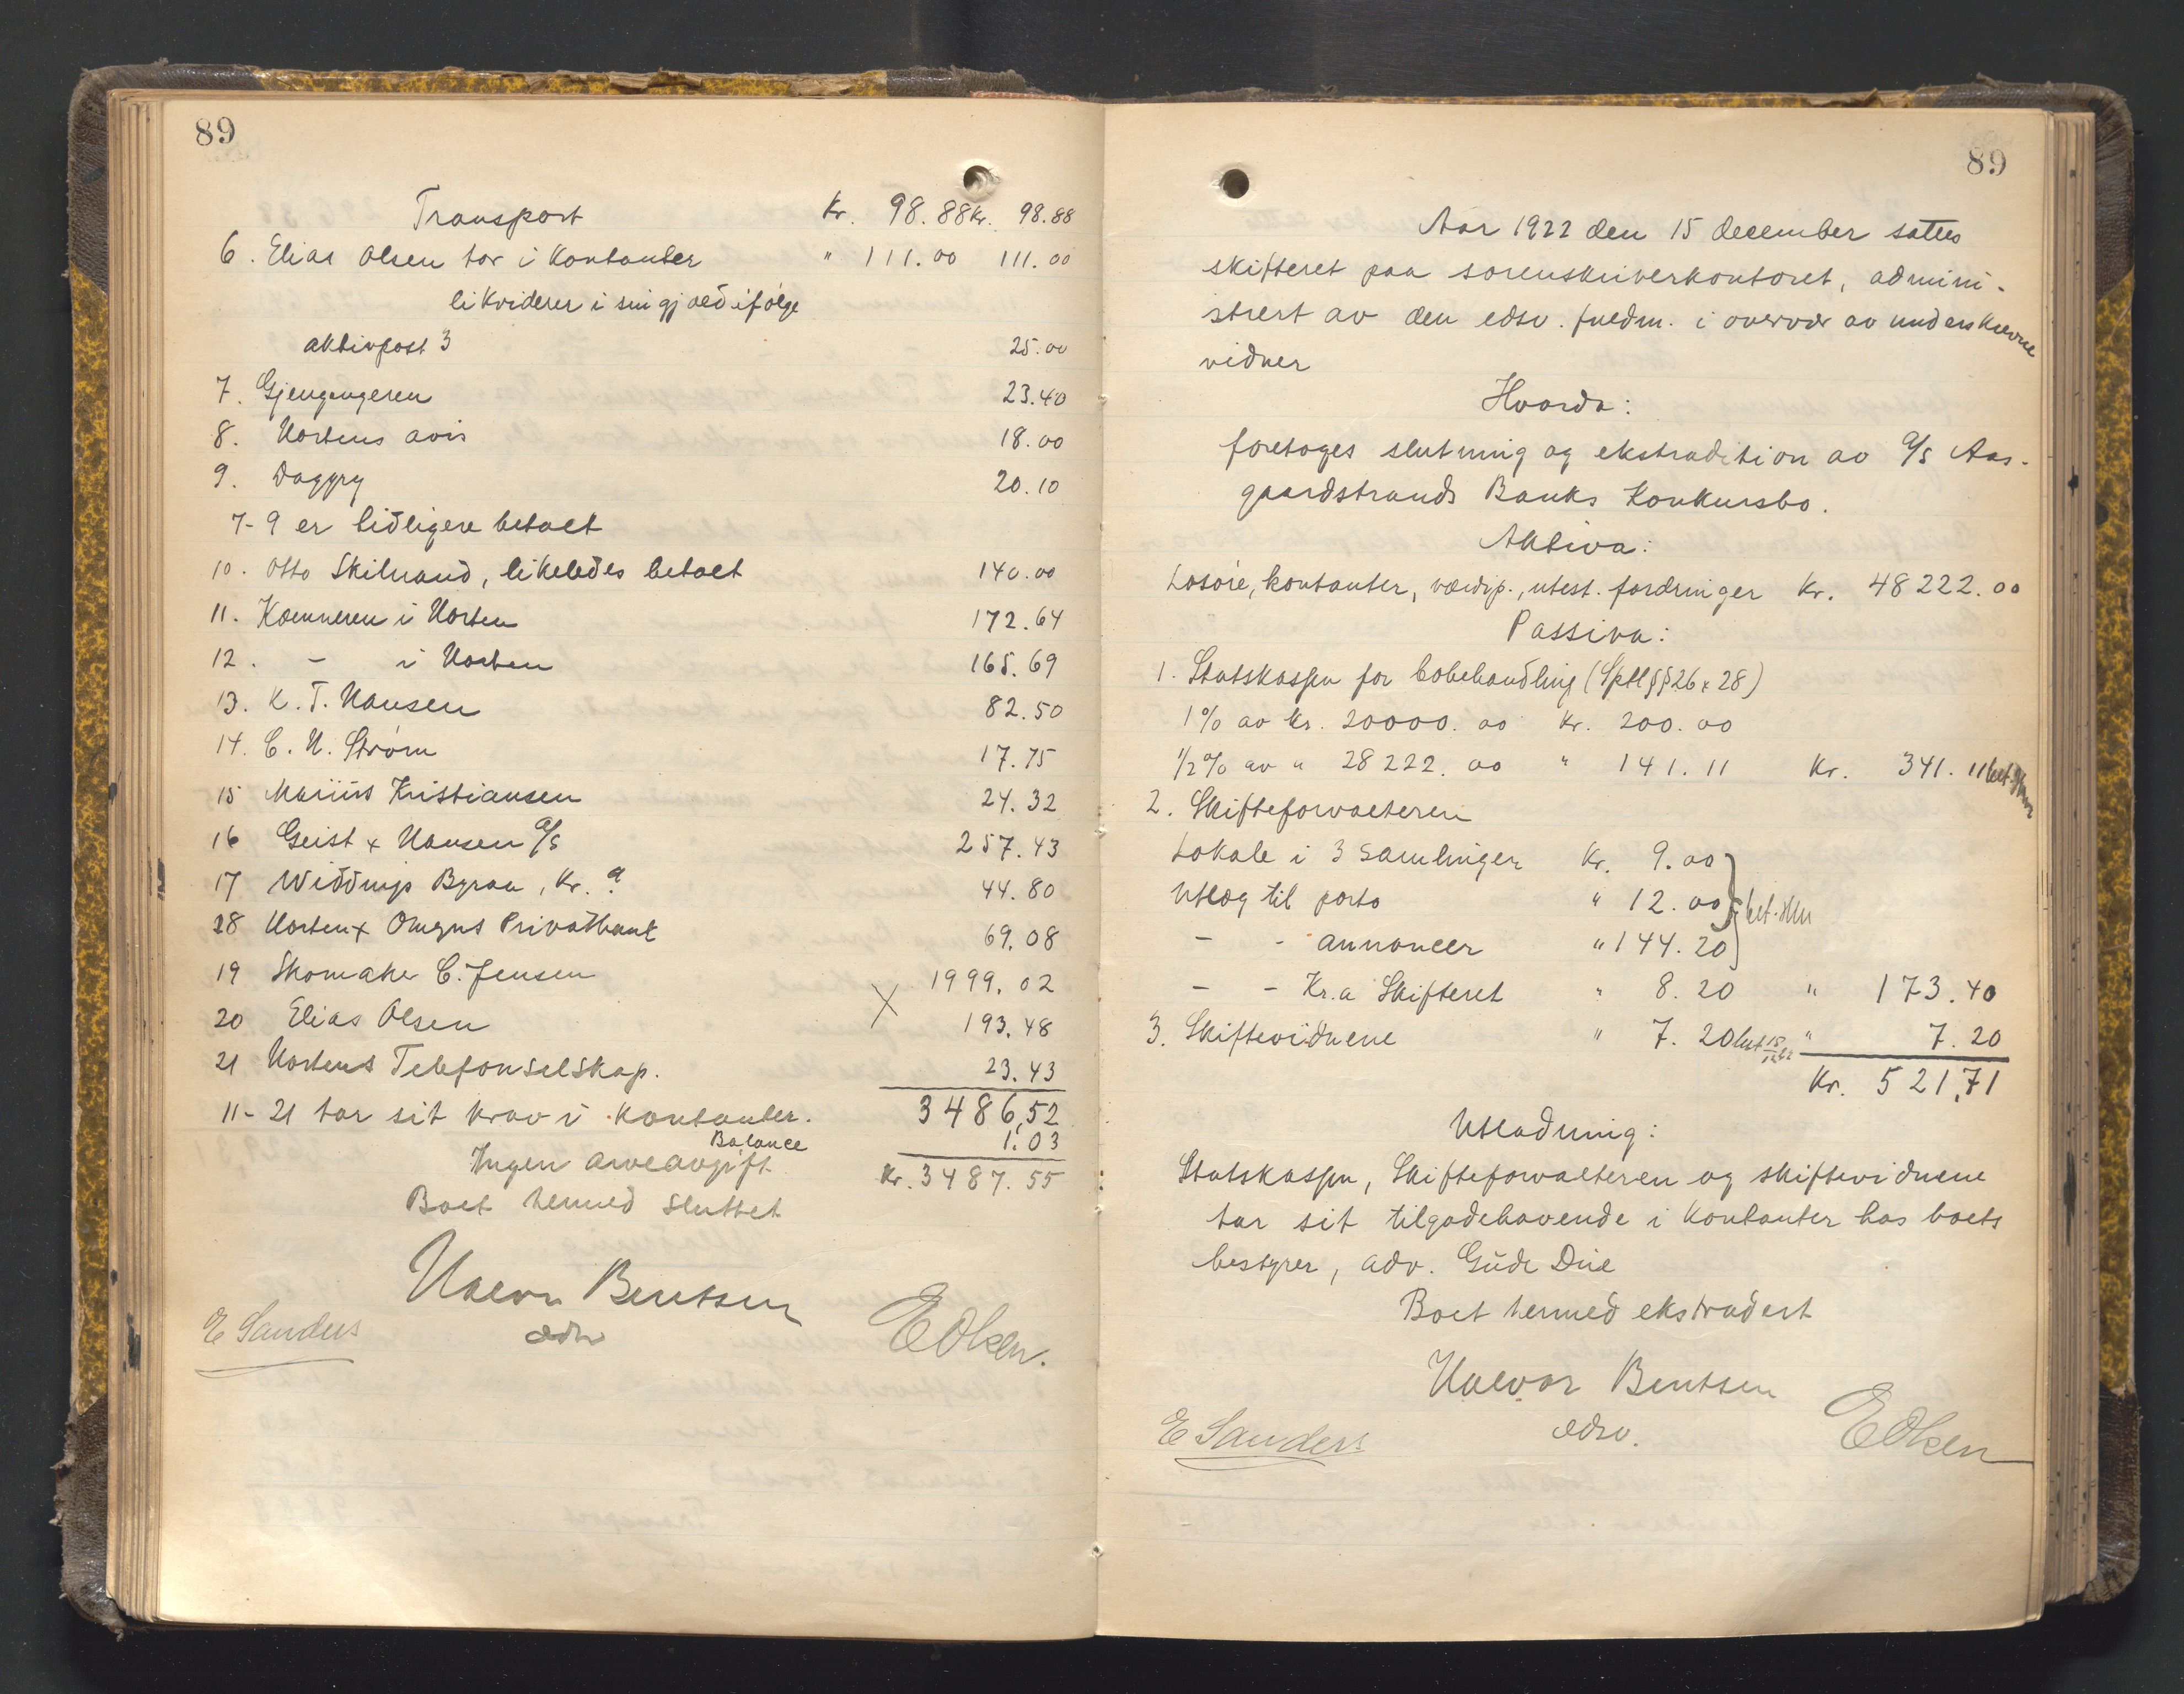 89
Transport Kr. 98.88 Kr. 98.88
6. Elias Olsen tar i kontanter " 111.00 111.00
likviderer i sin gjæld ifølge
aktivpost 3 25.00
7. Gjengangeren 23.40
8. Hortens avis 18.00
9. Daggry 20.10
7-9 er tidligere betalt
10. Otto Skilnand, likeledes betalt 140.00
11. Kæmneren i Horten 172.64
12. - i Horten 165.69
13. K. T. Hansen 82.50
14. C. H. Strøm 17.75
15 Marius Kristiansen 24.32
16 Geist & Hansen A/S 257.43
17 Widdings Byrau, Kr.a 44.80
18 Horten & Omegns Privatbank 69.08
19 Skomaker C. Jensen 1999.02
20 Elias Olsen X 193.48
21 Hortens Telefonselskap. 23.43
11-21 tar sit krav i kontanter. 3486,52
Balance 1.03
Ingen arveavgift Kr. 3487.55
Boet hermed sluttet
Halvor Bentsen
edsv
E Sanders
E Olsen.
89
Aar 1922 den 15 december sattes
skifteret paa sorenskriverkontoret, admini-
strert av den edsv. fuldm. i overvær av underskrevne
vidner
Hvorda:
foretoges slutning og ekstradition av A/S Aas-
gaardstrands Banks Konkursbo.
Aktiva:
Løsøre, kontanter, værdip., utest. fordringer Kr. 48222.00
Passiva:
1. Statskassen for bobehandling (Sptl §§ 26 & 28)
1% av kr. 20000.00 Kr. 200.00
1/2% av " 28222.00 " 141.11 Kr. 341.11 bet.
2. Skifteforvalteren
Lokale i 3 samlinger Kr. 9.00
Utlæg til porto " 12.00 bet.
- - annoncer " 144.20
- - Kr.a Skifteret " 8.20 " 173.40
3. Skiftevidnene " 7.20 bet 15/12 22 " 7.20
Kr. 521,71
Utlodning:
Statskassen, Skifteforvalteren og skiftevidnene
tar sit tilgodehavende i kontanter hos boets
bestyrer, adv. Gude Due
Boet hermed ekstradert
Halvor Bentsen
edsv.
E Sanders
E Olsen